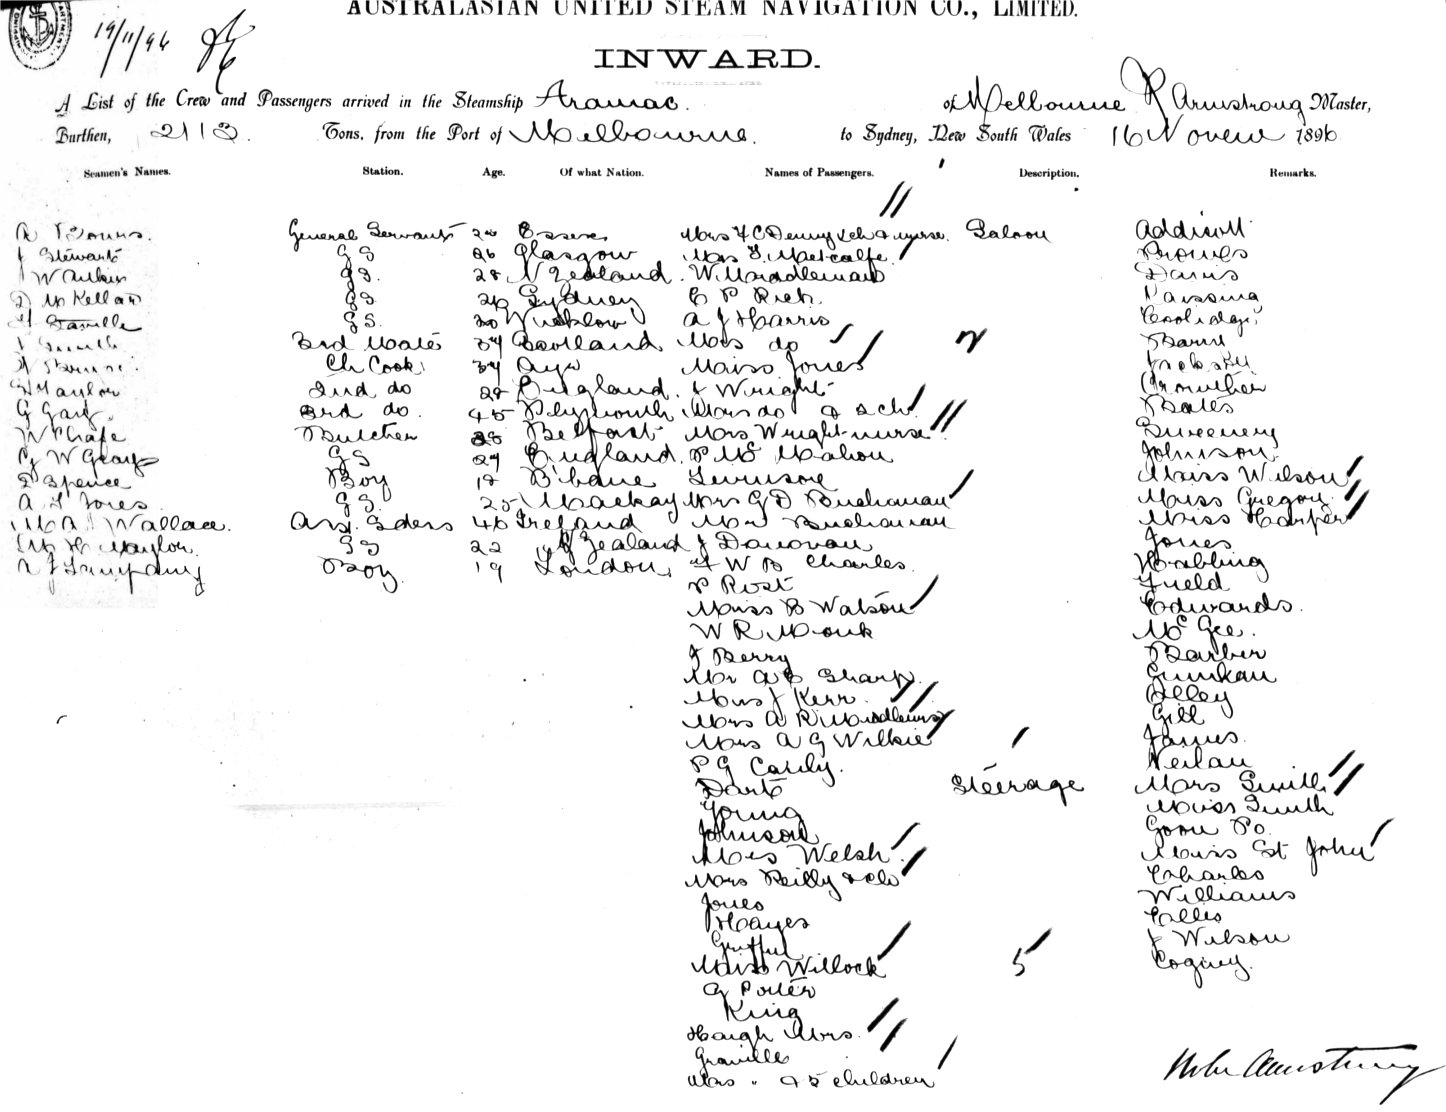 AUSTRALASIAN UNITED STEAM NAVIGATION CO., LIMITED.
19/11/96
INWARD.
A List of the Crew and Passengers arrived in the Steamship Aramac. of Melbourne R Armstrong Master,
Burthen, 2113 Tons, from the Port of Melbourne. to Sydney, New South Wales 16 Novem 1896
Seamen's Names. Station. Age. Of what Nation. Names of Passengers. Description. Remarks.
General Servant Essex Mrs F C Denny & ch & nurse. Saloon
J Stewart GS 26 Glasgow Mrs F. Metcalfe. Brownes
GS. 28 N Zealand. W. Maddleman Davis
D McKellar GS Sydney C P Rich
GS. 30 Wicklow A J Harris Coolidge
J Smith 3rd Mate 34 Scotland Mrs do
Ch Cook 34 Ayr Miss Jones
Naylor 2nd do 28 England. J Wright Crowther
G Gary. 3rd do. 45 Plymouth Mrs do & 2 ch. Bates
W Chafe Butcher Belfast Mrs Wright nurse Sweeney
W Geary GS 24 England. P McMahon Johnson.
D Spence Boy 17 B'bane Miss Wilson
A J Jones GS. 25 Mackay Mrs G D Buchanan Miss Gregory
Mrs A J Wallace. Ass. Sdess 46 Ireland Mr Buchanan Miss Harper
Naylor. GS 22 N Zealand J Donovan Jones
A J Timpany Boy 19 London F W B Charles. Hobbling
P Rust Field
Miss B Watson Edwards.
W R Monk McGee.
J Berry Barber
Mr A E Sharp
Mrs J Kerr. Olley
Mrs A R Middlemiss Gill
Mrs A G Wilkie James.
P G Neilan
Dart Steerage Mrs Smith
Young Miss Smith
Johnson Goon Po
Mrs Welsh Miss St John
Mrs Reilly & ch Charles
Jones Williams
Hayes Ellis
J Wilson
Miss Willock 5
G Porter
King
Haigh Mrs.
Granville
Mrs " & 5 children